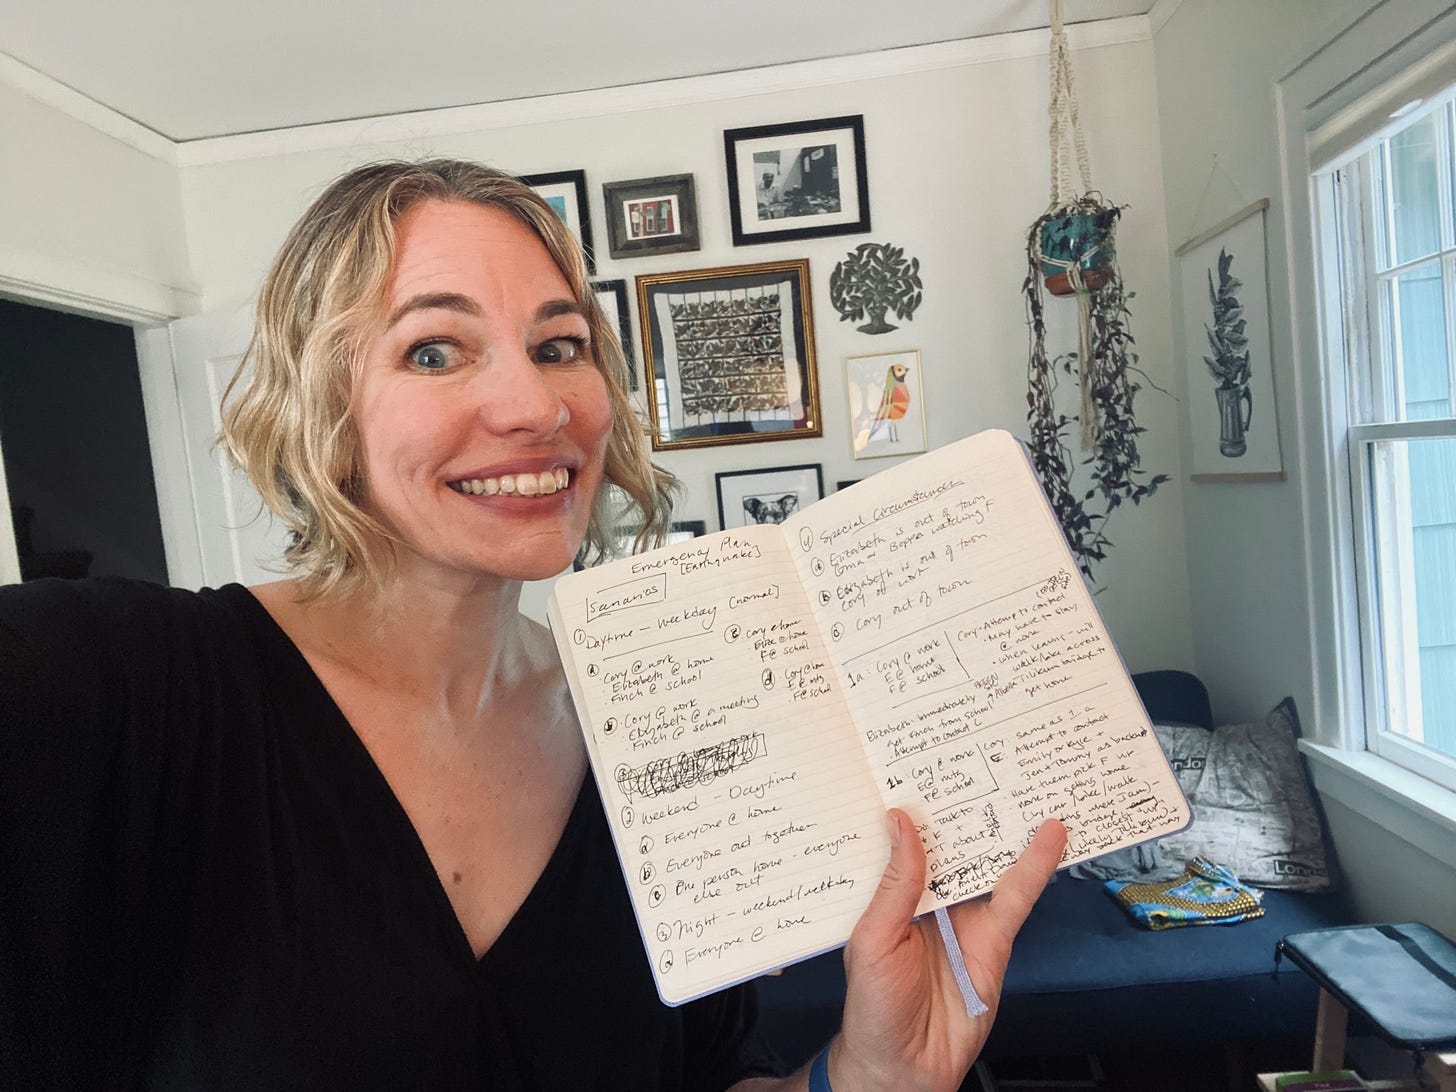 Emergency Plan
[Earthquake]
Scenarios
① Daytime — Weekday [normal]
ⓐ Cory @ work
· Elizabeth @ home
· Finch @ school
ⓑ · Cory @ work
· Elizabeth @ a meeting
· Finch @ school
ⓒ Cory @ home
F @ school
ⓓ Cory @ home
E @ mtg
F @ school
② Weekend — Daytime
ⓐ Everyone @ home
ⓑ Everyone out together
ⓒ One person home - everyone
else out
③ Night — weekend/weekday
ⓐ Everyone @ home
④ Special Circumstances
ⓐ Elizabeth is out of town
Boppa watching F
ⓑ Elizabeth is out of town
Cory @ work
ⓒ Cory out of town
1a: Cory @ work
E @ home
F @ school
Cory: Attempt to contact
· May have to stay
@ work
· when leaving - will
walk/bike across
Tilikum bridge to
get home
Elizabeth: immediately
get Finch from school
· Attempt to contact C
1b: Cory @ work
E @ mtg
F @ school
Cory: same as 1a
E: Attempt to contact
Emily or Kyle +
Jen + Tommy as backup
· Have them pick F up
· Work on getting home
(by car/bike/walk)
Talk to
K +
T about
plans
London